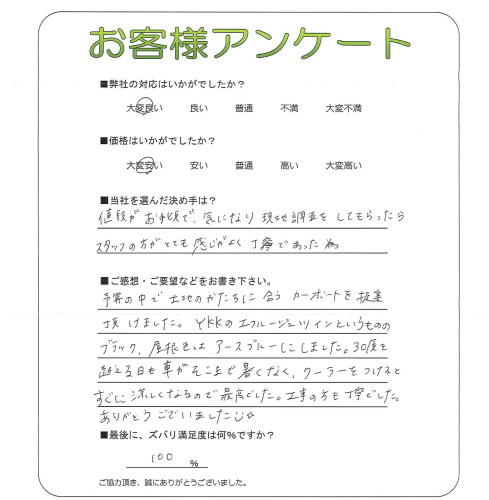 お客様アンケート
■弊社の対応はいかがでしたか？
大変良い 良い 普通 不満 大変不満
■価格はいかがでしたか？
大変安い 安い 普通 高い 大変高い
■当社を選んだ決め手は？
値段がお手頃で、気になり現地調査をしてもらったら
スタッフの方がとても感じがよく丁寧であった為
■ご感想・ご要望などをお書き下さい。
予算の中で土地のかたちに合うカーポートを提案
頂けました。YKKのエフルージュツインというものの
ブラック、屋根色はアースブルーにしました。30度を
超える日も車がそこまで暑くなく、クーラーをつけると
すぐに涼しくなるので最高でした。工事の方も丁寧でした。
ありがとうございました
■最後に、ズバリ満足度は何%ですか？
100 %
ご協力頂き、誠にありがとうございました。